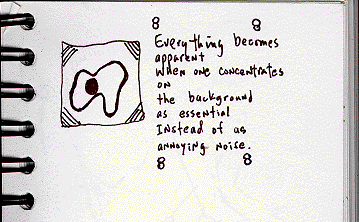 8 8
Everything becomes
apparent
when one concentrates
on
the background
as essential
Instead of as
annoying noise.
8 8